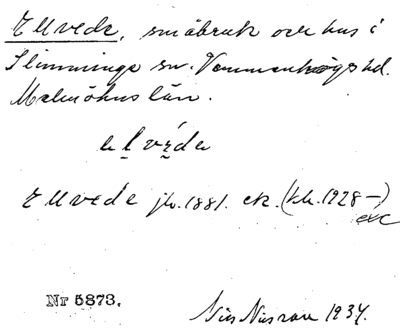 Ellvede, småbruk och hus i
Slimminge sn. Vemmenhögs hd.
Malmöhus län.
Ellvede jb. 1881. ek. (kk. 1928 –)
Nr 5873.
Nils Nilsson 1934.